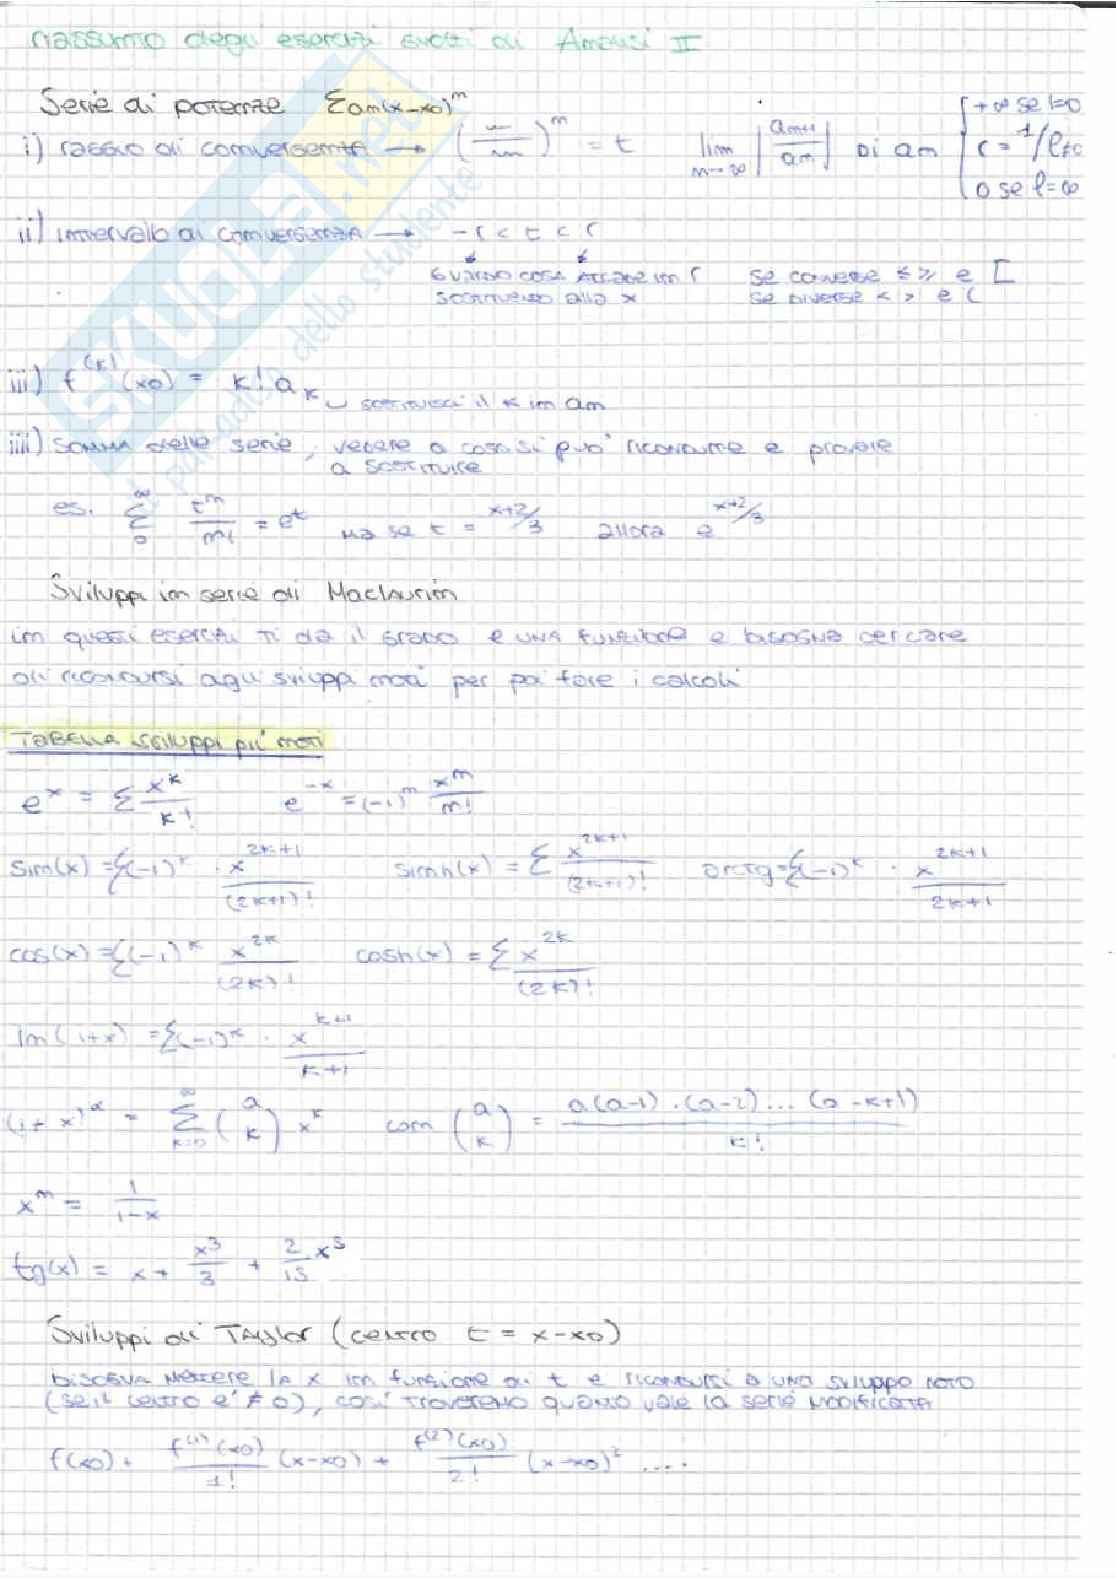 riassunto degli esercizi svolti di Analisi II
Serie di potenze Σan(x-x0)^n
i) raggio di convergenza → (—)^n = t lim n→∞ |an+1/an| di an { +∞ se l=0
r = 1/l ≠0
0 se l=∞
ii) intervallo di convergenza → -r < t < r
guardo cosa accade in r se converge ≤ ≥ e [
sostituendo alla x se diverge < > e (
iii) f^(k)(x0) = k! ak sostituisci il k in an
iiii) somma delle serie, vedere a cosa si può ricondurre e provare
a sostituire
es. Σ 0 ∞ t^n/n! = e^t ma se t = x+2/3 allora e^x+2/3
Sviluppi in serie di Maclaurin
in questi esercizi ti dà il grado e una funzione e bisogna cercare
di ricondursi agli sviluppi noti per poi fare i calcoli
TABELLA sviluppi più noti
e^x = Σ x^k/k! e^-x = (-1)^n x^n/n!
sin(x) = Σ(-1)^k · x^2k+1/(2k+1)! sinh(x) = Σ x^2k+1/(2k+1)! arctg = Σ(-1)^k · x^2k+1/2k+1
cos(x) = Σ(-1)^k x^2k/(2k)! cosh(x) = Σ x^2k/(2k)!
ln(1+x) = Σ(-1)^k · x^k+1/k+1
(1+x)^α = Σ k=0 ∞ (a k) x^k con (a k) = a(a-1)·(a-2)...(a-k+1)/k!
x^n = 1/1-x
tg(x) = x + x^3/3 + 2/15 x^5
Sviluppi di Taylor (centro t = x-x0)
bisogna mettere la x in funzione di t e ricondursi a uno sviluppo noto
(se il centro è ≠ 0), così troveremo quanto vale la serie modificata
f(x0) + f^(1)(x0)/1! (x-x0) + f^(2)(x0)/2! (x-x0)^2 ....
SKUOLA.net
il paradiso dello studente